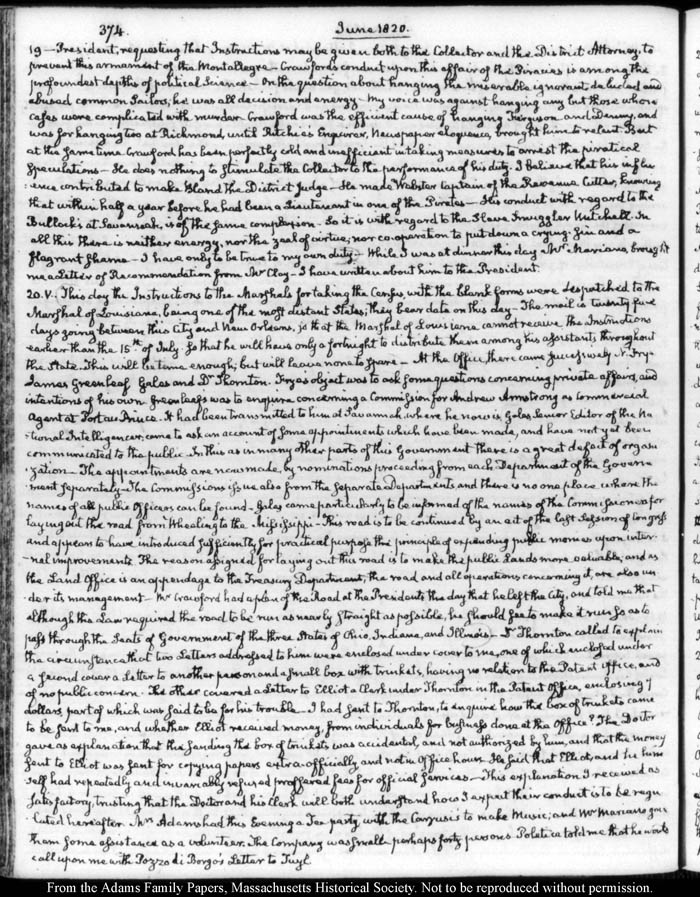 374.
June 1820.
19 — President, requesting that Instructions may be given both to the Collector and the District Attorney, to
prevent this armament of the Montallegre — Crawford's conduct upon this affair of the Piracies is among the
profoundest depths of political Science — On the question about hanging the miserable ignorant, deluded and
abused common Sailors, he was all decision and energy — My voice was against hanging any but those whose
cases were complicated with murder. Crawford was the efficient cause of hanging Ferguson and Denny, and
was for hanging two at Richmond, until Ritchie's Enquirer, Newspaper eloquence, brought him to relent. But
at the same time Crawford has been perfectly cold and inefficient in taking measures to arrest the piratical
Speculations — He does nothing to stimulate the Collector to the performance of his duty. I believe that his influ
:ence contributed to make Bland the District judge — He made Webster Captain of the Revenue Cutter, knowing
that within half a year before he had been a Lieutenant in one of the Pirates — His conduct with regard to the
Bullock's at Savannah, is of the same complexion — So it is with regard to the Slave Smuggler Mitchell. In
all this there is neither energy, nor the zeal of virtue, nor co-operation to put down a crying Sin and a
flagrant shame — I have only to be true to my own duty — While I was at dinner this day Mr. Mariano, brought
me a Letter of Recommendation from Mr Clay — I have written about him to the President.
20. V. This day the Instructions to the Marshals for taking the Census, with the blank forms were despatched to the
Marshal of Louisiana, being one of the most distant States; they bear date on this day — The mail is twenty five
days going between this City and New Orleans, so that the Marshal of Louisiana cannot receive the Instructions
earlier than the 15th of July so that he will have only a fortnight to distribute them among his assistants throughout
the State. This will be time enough; but will leave none to spare — At the Office, there came successively N. Frye
James Greenleaf Gales and Dr Thornton. Frye's object was to ask some questions concerning private affairs, and
intentions of his own Greenleaf's was to enquire concerning a Commission for Andrew Armstrong as Commercial
Agent at Port au Prince. It had been transmitted to him at Savannah where he now is Gales Senior Editor of the Na
:tional Intelligencer, came to ask an account of some appointments which have been made, and have not yet been
communicated to the public. In this as in many other parts of this Government there is a great defect of organi
:zation — The appointments are now made, by nominations proceeding from each Department of the Govern
:ment separately — The Commissions issue also from the separate Departments and there is no one place where the
names of all public Officers can be found — Gales came particularly to be informed of the names of the Commissioners for
laying out the road from Wheeling to the Mississippi — This road is to be continued by an act of the last Session of Congress
and appears to have introduced sufficiently for practical purpose the principle of expending public monies upon inter
:nal improvements. The reason assigned for laying out this road is to make the public Lands more valuable, and as
the Land Office is an appendage to the Treasury Department, the road and all operations concerning it, are also un
:der its management — Mr Crawford had a plan of the Road at the Presidents the day that he left the City, and told me that
although this Law required the road to be run as nearly straight as possible, he should see to make it run so as to
pass through the Seats of Government of the three States of Ohio, Indiana, and Illinois — Dr Thornton called to explain
the circumstance that two Letters addressed to him were enclosed under cover to me, one of which enclosed under
a second cover a Letter to another person and a small box with trinkets, having no relation to the Patent Office, and
of no public concern. The other covered a Letter to Elliot a Clerk under Thornton in the Patent Office, enclosing 7
dollars part of which was said to be for his trouble — I had sent to Thornton, to enquire how the box of trinkets came
to be sent to me, and whether Elliot received money, from individuals for business done at the Office? The Doctor
gave as explanation that the sending the box of trinkets was accidental, and not authorized by him, and that the money
sent to Elliot was sent for copying papers extra-officially and not in Office hours. He said that Elliot, and he him
:self had repeatedly and invariably refused proffered fees for official services — This explanation I received as
satisfactory, trusting that the Doctor and his Clerk will both understand how I expect their conduct is to be regu
:lated hereafter. Mrs Adams had this Evening a Tea party, with the Corrusi's to make Music; and Mr Mariano gave
them some assistance as a volunteer. The Company was small — perhaps forty persons Poletica told me that he would
call upon me with Pozzo di Borgo's Letter to Tuyl.
From the Adams Family Papers, Massachusetts Historical Society. Not to be reproduced without permission.